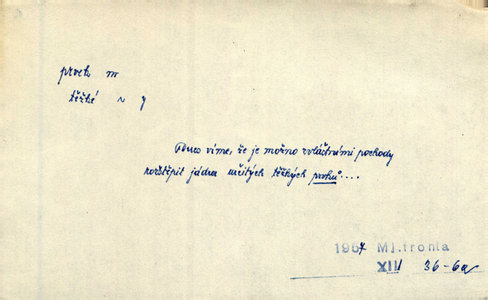 prvek m
těžké ~ y
Dnes víme, že je možno zvláštními pochody
rozštěpit jádra určitých těžkých prvků....
1957 Ml.fronta
XIII 36-6a